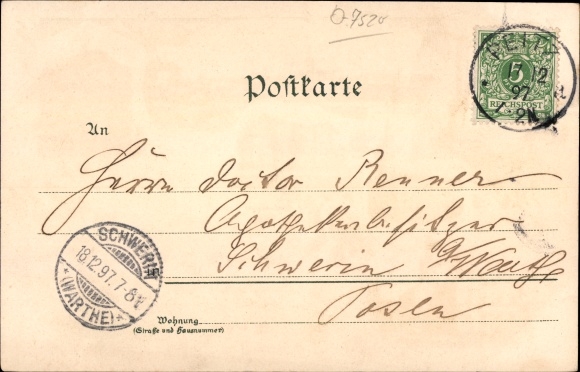 0.752a
Postkarte
PEITZ
17 12
97
1-2N
5
REICHSPOST
An
Herrn Doctor Renner
Apothekenbesitzer
Schwerin a/Warthe
Posen
SCHWERIN
18.12.97.7-8V
*(WARTHE)*
Wohnung
(Straße und Hausnummer)